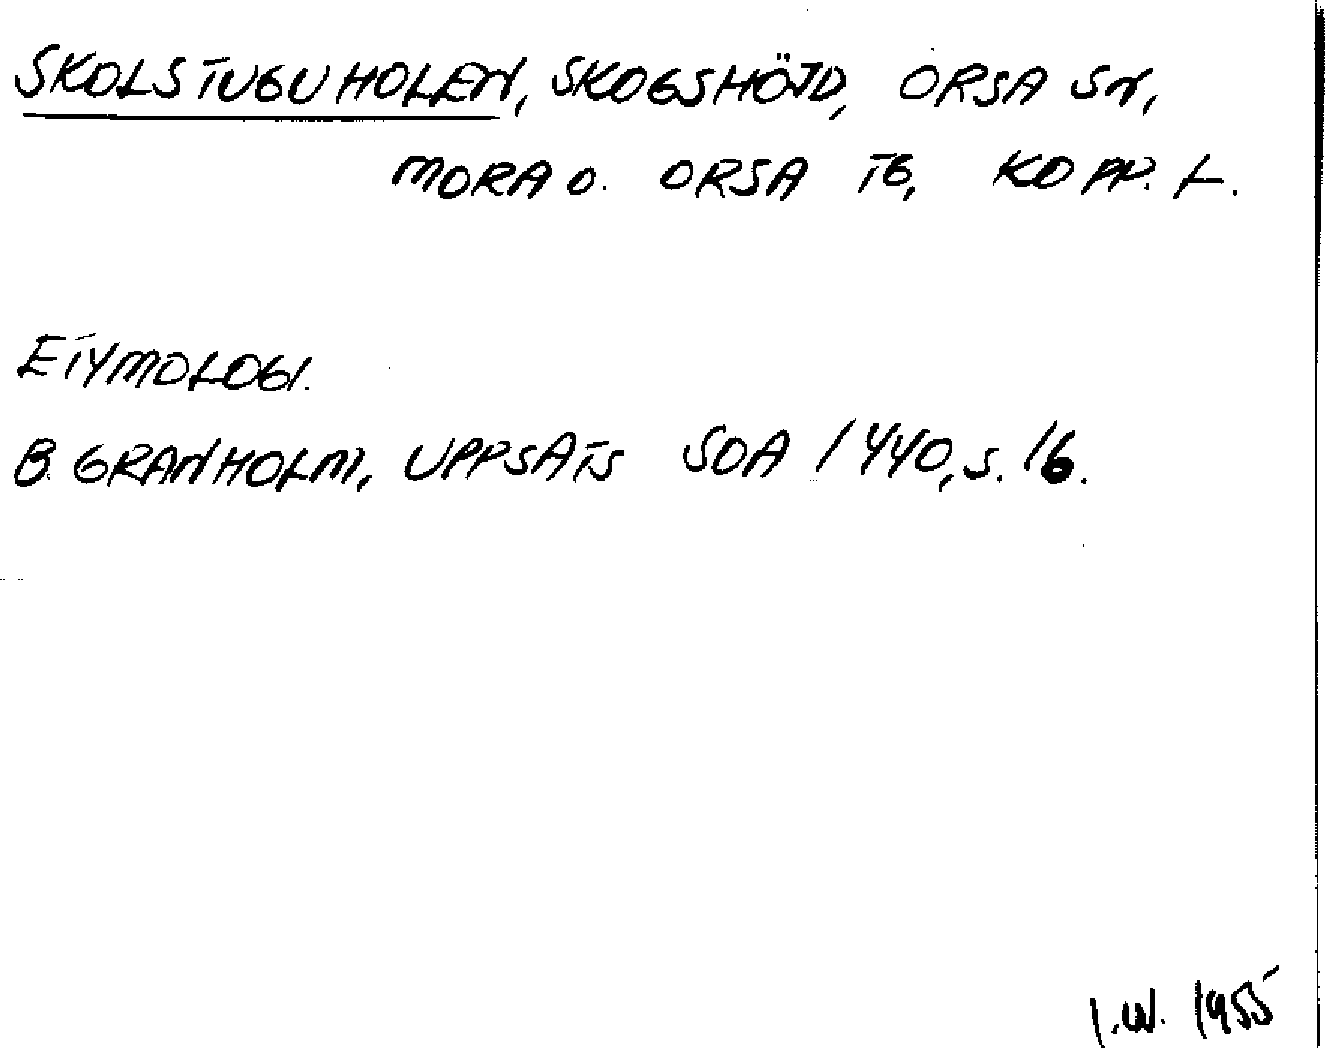 SKOLSTUGUHOLEN, SKOGSHÖJD, ORSA SN,
MORA O. ORSA TG, KOPP. L.
ETYMOLOGI.
B. GRANHOLM, UPPSATS SOA 1440, S. 16.
I.W. 1955